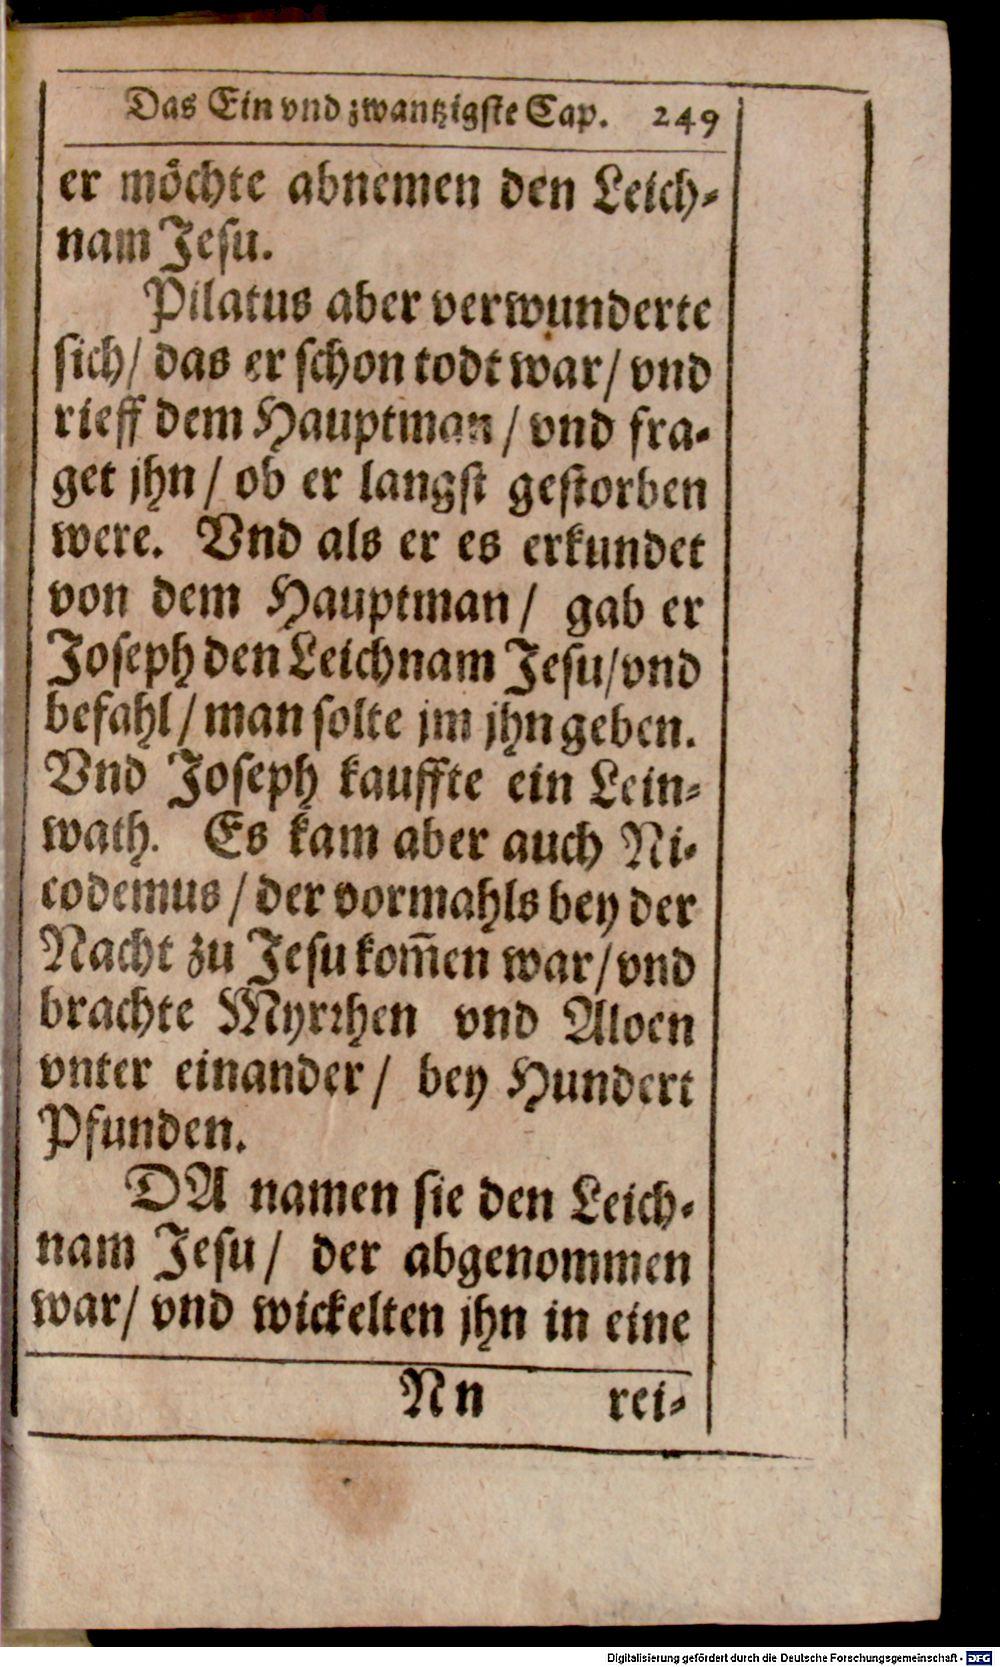 Das Ein vnd zwantzigste Cap. 249
er möchte abnemen den Leich-
nam Jesu.
Pilatus aber verwunderte
sich/ das er schon todt war/ vnd
rieff dem Hauptman / vnd fra-
get jhn / ob er langst gestorben
were. Vnd als er es erkundet
von dem Hauptman / gab er
Joseph den Leichnam Jesu/vnd
befahl / man solte jm jhn geben.
Vnd Joseph kauffte ein Lein-
wath. Es kam aber auch Ni-
codemus / der vormahls bey der
Nacht zu Jesu kom̃en war/vnd
brachte Myrrhen vnd Aloen
vnter einander / bey Hundert
Pfunden.
DA namen sie den Leich-
nam Jesu / der abgenommen
war/ vnd wickelten jhn in eine
Nn rei-
Digitalisierung gefördert durch die Deutsche Forschungsgemeinschaft - DFG